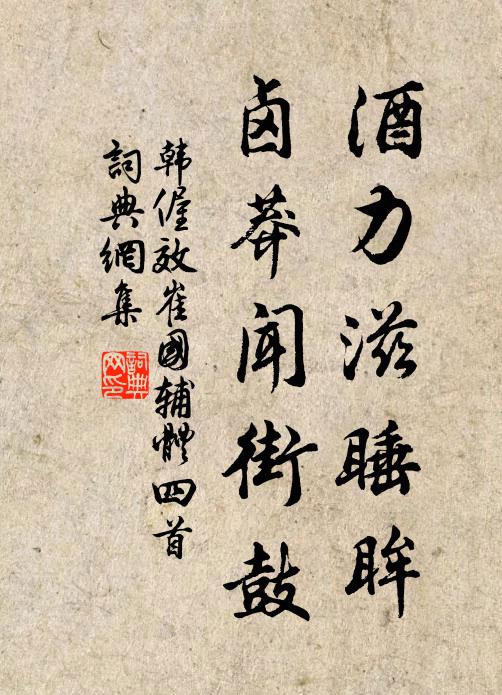 酒力滋睡眸
卤莽闻街鼓
韩偓效崔國辅體四首
詞典網集
詞典网印